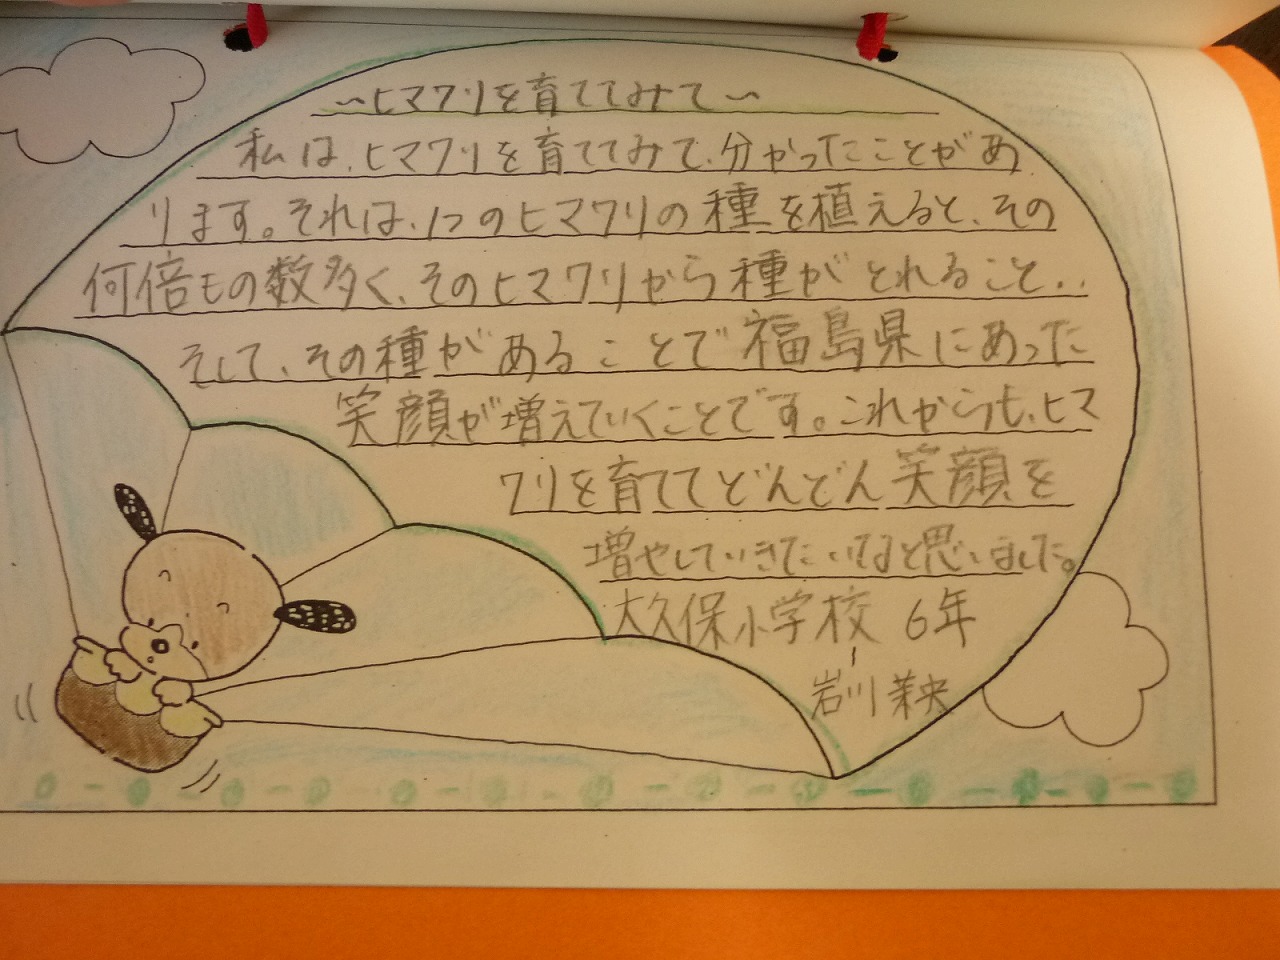 ～ヒマワリを育ててみて～
私は、ヒマワリを育ててみて、分かったことがあ
ります。それは、1つのヒマワリの種を植えると、その
何倍もの数多く、そのヒマワリから種がとれること、、
そして、その種があることで福島県にあった
笑顔が増えていくことです。これからも、ヒマ
ワリを育ててどんどん笑顔を
増やしていきたいなと思いました。
大久保小学校 6年
岩川 茉央